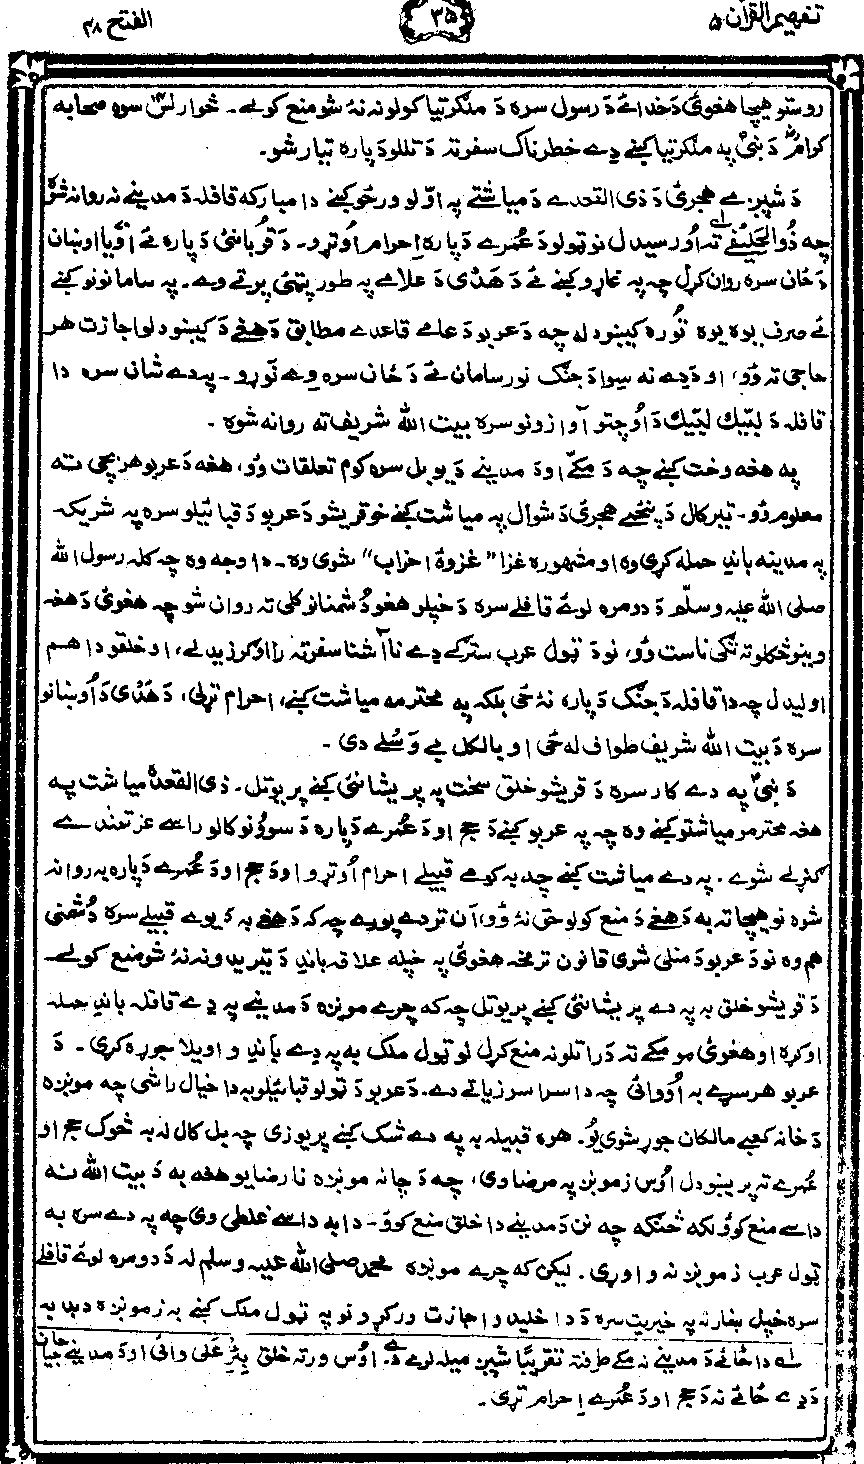 تفهیم القرآن ۵
۳۵
الفتح ۴۸
روستو هیچا هغوئ دَ خدائے دَ رسول سره دَ ملګرتیا کولو نه نهٔ شو منع کولے۔ څوارلس سوه صحابه
کرامؓ دَ نبیؐ په ملګرتیا کښے دے خطرناک سفر ته دَ تللو دَ پاره تیار شو۔
دَ شپږمے هجرئ دَ ذی القعدے دَ میاشتے په اوّلو ورځو کښے دا مبارکه قافله دَ مدینے نه روانه شوه
چه ذُوالحلیفے ته اُورسیدل نو ټولو دَ عُمرے دَ پاره اِحرام اُوتړو۔ دَ قُربانئ دَ پاره ئے اویا اوښان
دَ ځان سره روان کړل چه په غاړو کښے ئے دَ هَدْی دَ علامے په طور پټئ پرتے وے۔ په سامانونو کښے
ئے صرف یوه یوه تُوره کیښودله چه دَ عربو دَ عامے قاعدے مطابق دَ هغے دَ کیښودلو اجازت هر
حاجی ته وُو، او دَ دے نه سِوا دَ جنګ نور سامان ئے دَ ځان سره وے نهٔ وړو۔ په دے شان سره دا
قافله دَ لبّیك لبّیك دَ اُوچتو آوازونو سره بیت الله شریف ته روانه شوه۔
په هغه وخت کښے چه دَ مکے او دَ مدینے دَ یو بل سره کوم تعلقات وُو، هغه دَ عربو هر بچی ته
معلوم وُو۔ تیر کال دَ پنځمے هجرئ دَ شوال په میاشت کښے خو قریشو دَ عربو دَ قبائیلو سره په شریکه
په مدینه باندِ حمله کړی وه او مشهوره غزا ”غزوهٔ احزاب“ شوی وه۔ دا وجه وه چه کله رسول الله
صلی الله علیه وسلّم دَ دومره لوئے قافلے سره دَ خپلو هغو دُشمنانو کلی ته روان شو چه هغوئ دَ هغه
وینو څکلو ته تږی ناست وُو، نو دَ ټول عرب سترګے دے ناآشنا سفر ته را اُوګرزیدلے، او خلقو دا هم
اولیدل چه دا قافله دَ جنګ دَ پاره نهٔ ځی بلکه په محترمه میاشت کښے، احرام تړلی، دَ هَدْی دَ اُوښانو
سره دَ بیت الله شریف طواف له ځی او بالکل بے وَسْلے دی۔
دَ نبیؐ په دے کار سره دَ قریشو خلق سخت په پریشانئ کښے پریوتل۔ ذی القعده میاشت په
هغه محترمو میاشتو کښے وه چه په عربو کښے دَ حج او دَ عُمرے دَ پاره دَ سوونو کالو راسے عزتمندے
ګنړلے شوے۔ په دے میاشت کښے چه به کومے قبیلے احرام اُوتړو او دَ حج او دَ عُمرے دَ پاره به روانه
شوه نو هیچا ته به دَ هغے دَ منع کولو حق نهٔ وُو، آن تردے پورے چه که دَ هغے به دَ یوے قبیلے سره دُشمنی
هم وه نو دَ عربو دَ منلی شوی قانون ترمخه هغوئ په خپله علاقه باندِ دَ تیریدو نه نهٔ شو منع کولے۔
دَ قریشو خلق به په دے پریشانئ کښے پریوتل چه که چرے مونږه دَ مدینے په دے قافله باندِ حمله
اوکړه او هغوئ مو مکے ته دَ راتلو نه منع کړل نو ټول ملک به په دے باندِ واویلا جوړه کړی۔ دَ
عربو هر سړے به اُووائی چه دا سراسر زیاتے دے۔ دَ عربو دَ ټولو قبائیلو به دا خیال راشی چه مونږه
دَ خانه کعبے مالکان جوړ شوی یُو۔ هره قبیله به په دے شک کښے پریوزی چه بل کال له به څوک حج او
عُمرے ته پریښودل اوْس زمونږ په مرضا وی، چه دَ چا نه مونږه نارضا یو هغه به دَ بیت الله نه
داسے منع کوُو لکه څنګه چه نن دَ مدینے دا خلق منع کوُو۔ دا به داسے غلطی وی چه په دے سره به
ټول عرب زمونږ نه واوړی۔ لیکن که چرے مونږه محمد صلی الله علیه وسلم له دَ دومره لوئے قافلے
سره خپل ښار ته په خیریت سره دَ داخلیدو اجازت ورکړو نو په ټول ملک کښے به زمونږه دبدبه
لـه دا ځائے دَ مدینے نه مکے طرف ته تقریباً شپږ میله لرے دے۔ اوْس ورته خلق بِئرِ عَلی وائی او دَ مدینے حاجیان
دَ دے ځائے نه دَ حج او دَ عُمرے اِحرام تړی۔